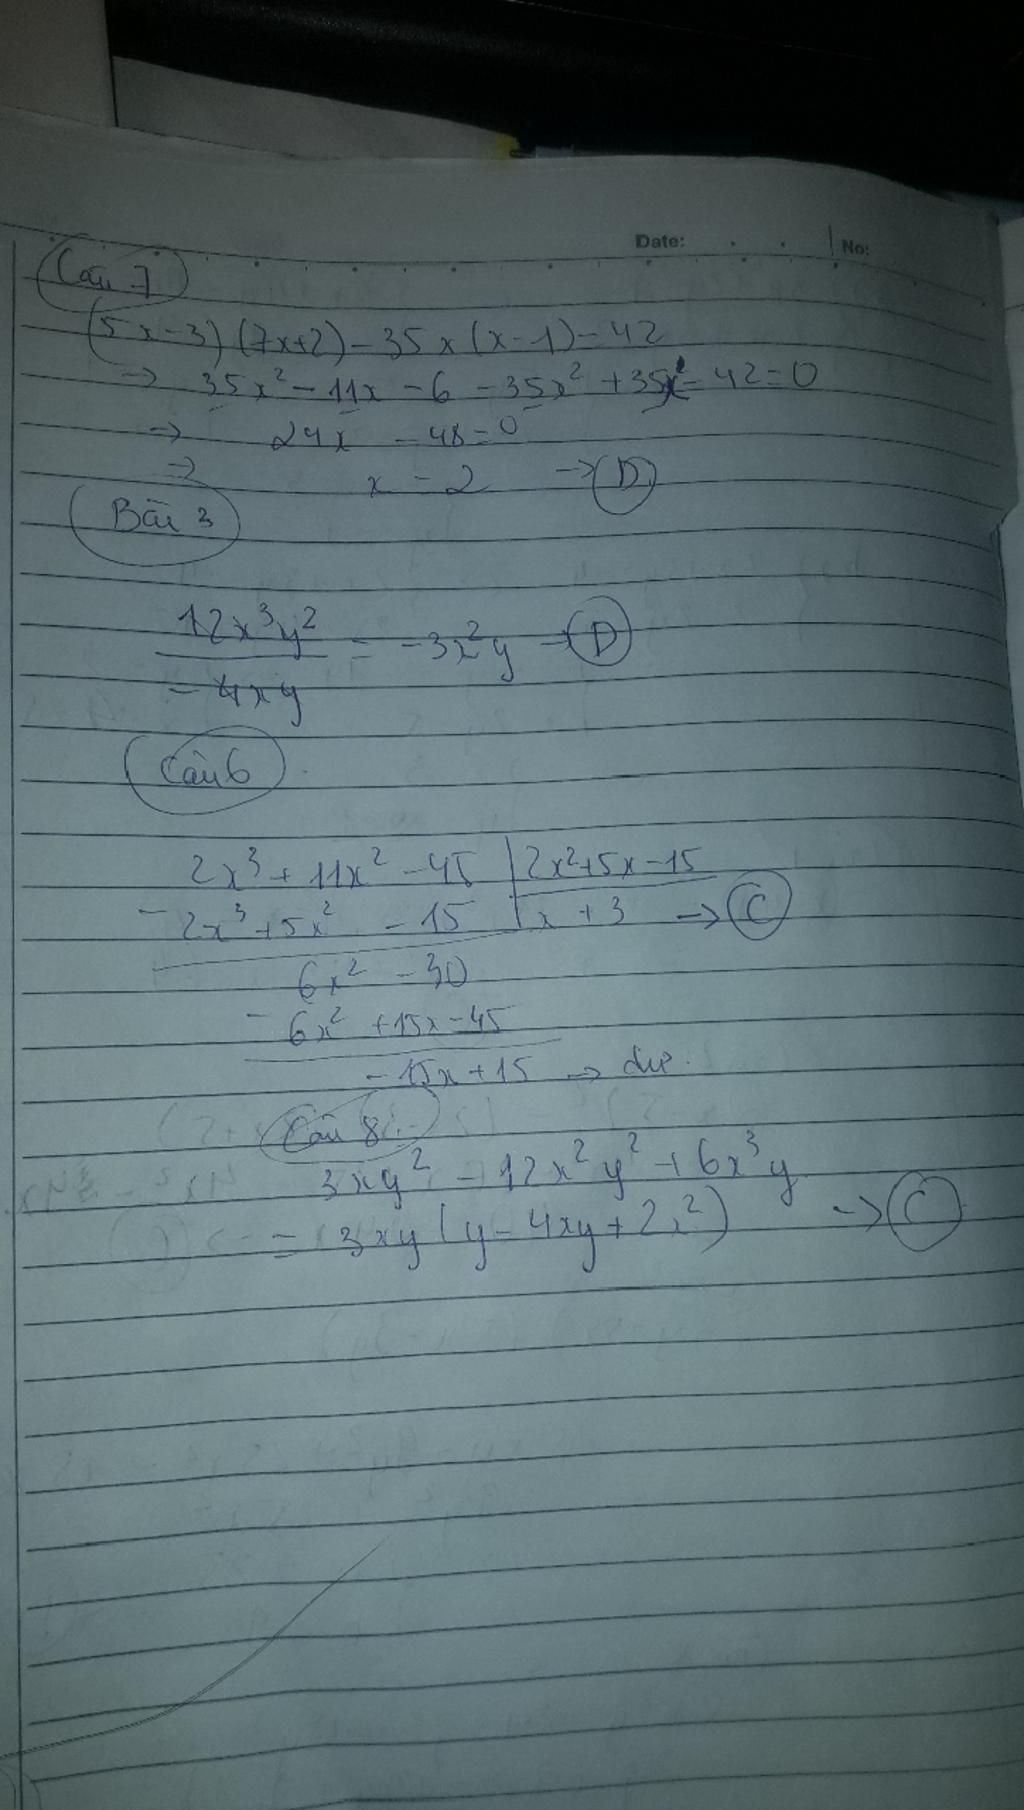 Date: No:
Câu 7
(5x-3)(7x+2)-35x(x-1)=42
→ 35x² - 11x - 6 - 35x² + 35x - 42 = 0
→ 24x - 48 = 0
→ x = 2 → D
Bài 3
12x³y² / -4xy = -3x²y → D
Câu 6
2x³ + 11x² - 45 | 2x²+5x-15
- 2x³+5x² - 15 | x + 3 → C
6x² - 30
- 6x² + 15x - 45
- 15x + 15 → dư.
Câu 8:
3xy² - 12x²y² + 6x³y
= 3xy(y - 4xy + 2x²) → C